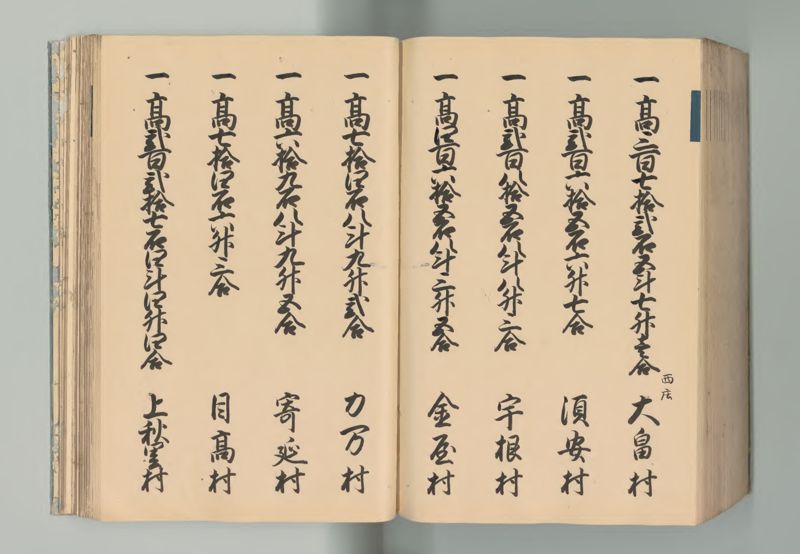 一 高三百七拾弐石五斗七升壱合 西庄 大畠村
一 高弐百六拾五石六升七合 須安村
一 高弐百八拾五石八斗八升三合 宇根村
一 高四百六拾五石八斗三升五合 金屋村
一 高七拾四石八斗九升弐合 力万村
一 高六拾九石八斗九升五合 寄延村
一 高七拾四石六升三合 目高村
一 高弐百弐拾七石四斗四升四合 上秋里村